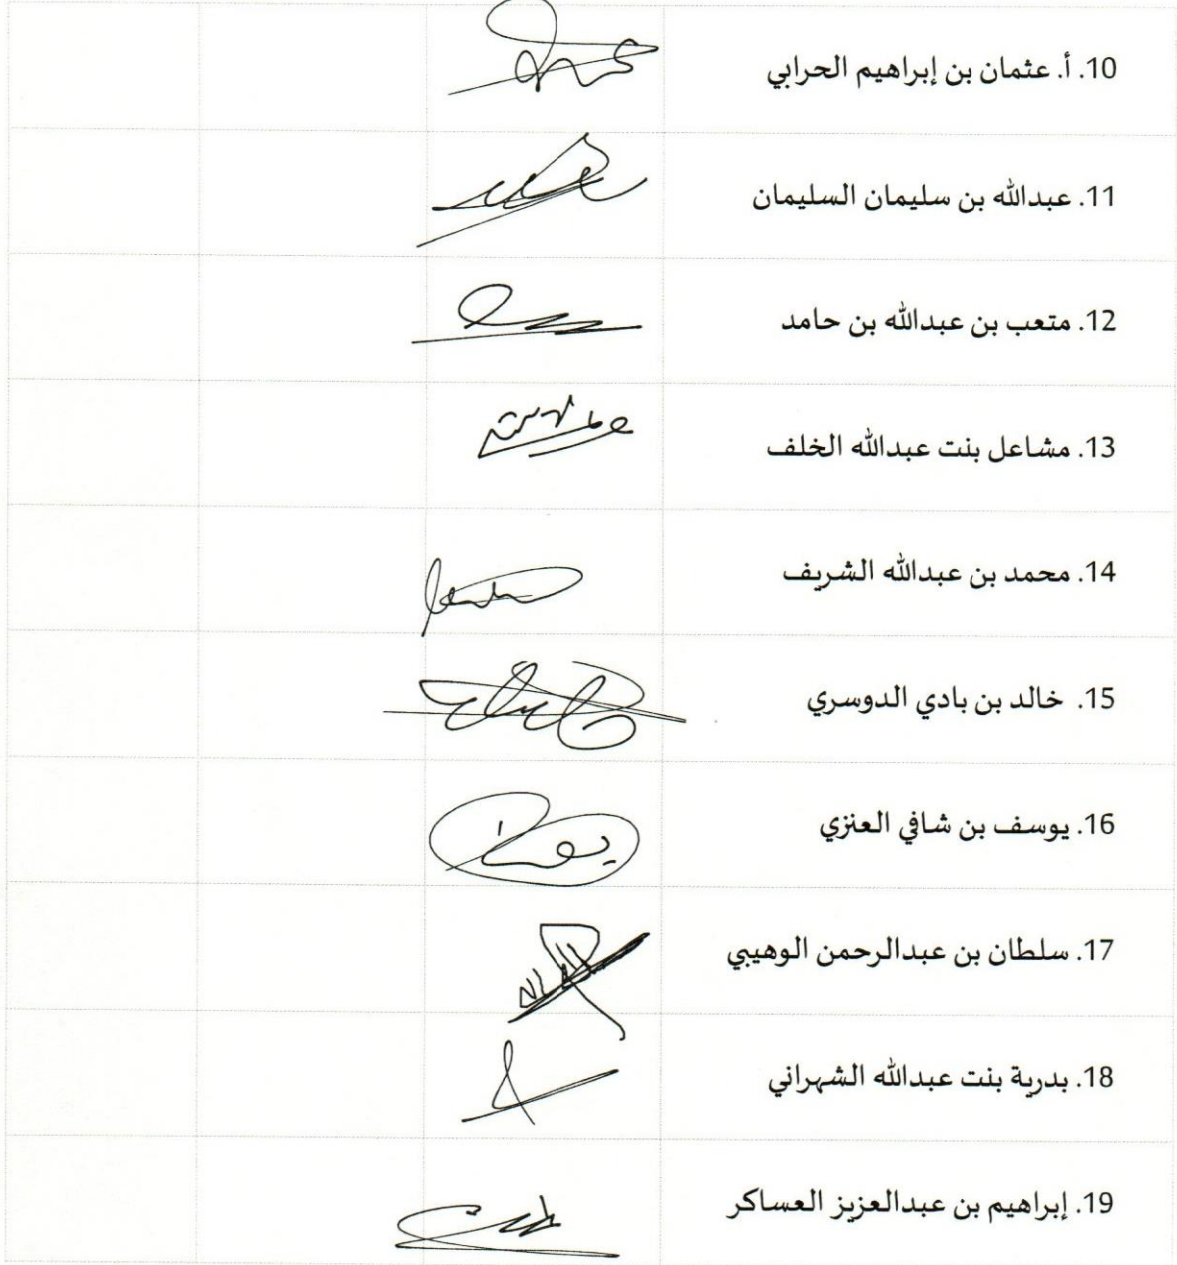 10. أ. عثمان بن إبراهيم الحرابي
11. عبدالله بن سليمان السليمان
12. متعب بن عبدالله بن حامد
13. مشاعل بنت عبدالله الخلف
14. محمد بن عبدالله الشريف
15. خالد بن بادي الدوسري
16. يوسف بن شافي العنزي
17. سلطان بن عبدالرحمن الوهيبي
18. بدرية بنت عبدالله الشهراني
19. إبراهيم بن عبدالعزيز العساكر